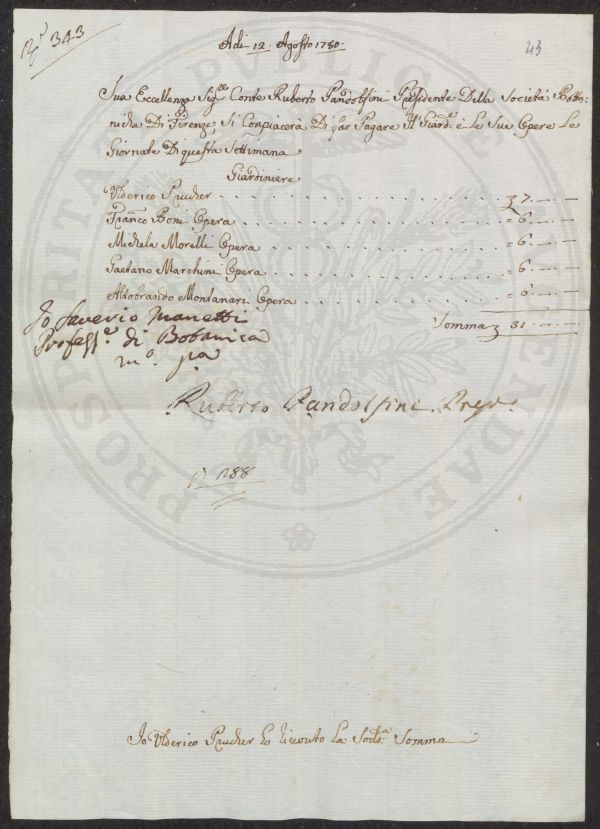 343
43
Adi 12. Agosto 1780.
Sua Eccellenza Sig.re Conte Ruberto Pandolfini Presidente Della Società Botta:
nicha Di Firenze, Si Conpiacerà Di far Pagare Al Giard.e e Le Sue Opere Le
Giornate Di questa Settimana
Giardiniere
Ulderico Prucher = 7 . —
Franco Boni Opera = 6 . —
Michele Morelli Opera = 6 . —
Gaetano Marchini Opera = 6 . —
Altobrando Montanari Opera = 6 . —
Somma 31 . —
Io Saverio Manetti
Profess.e di Botanica
m.o p.a
Ruberto Pandolfini Pres.
288
Io Ulderico Prucher ho riceuto La Sod.a Somma
PROSPERITATI PUBLICAE AUGENDAE